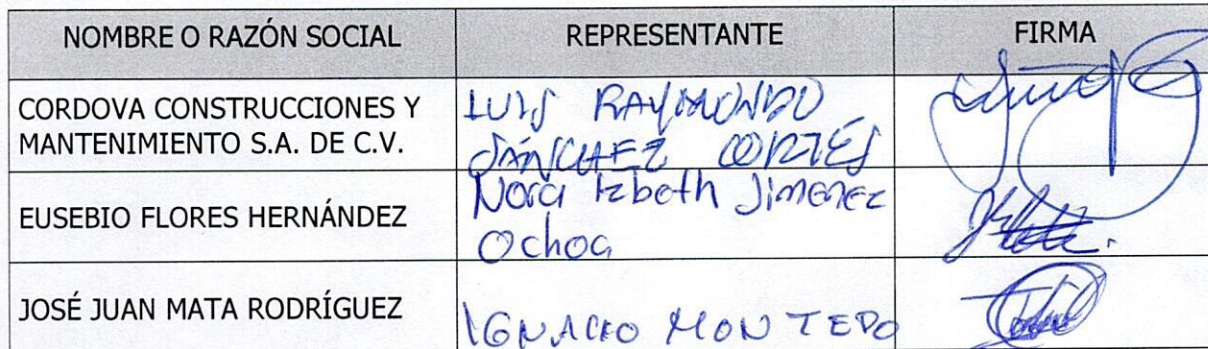 NOMBRE O RAZÓN SOCIAL REPRESENTANTE FIRMA
CORDOVA CONSTRUCCIONES Y
MANTENIMIENTO S.A. DE C.V.
LUIS RAYMUNDO
SÁNCHEZ CORTÉS
EUSEBIO FLORES HERNÁNDEZ
Nora Izbeth Jimenez
Ochoa
JOSÉ JUAN MATA RODRÍGUEZ
IGNACIO MONTERO